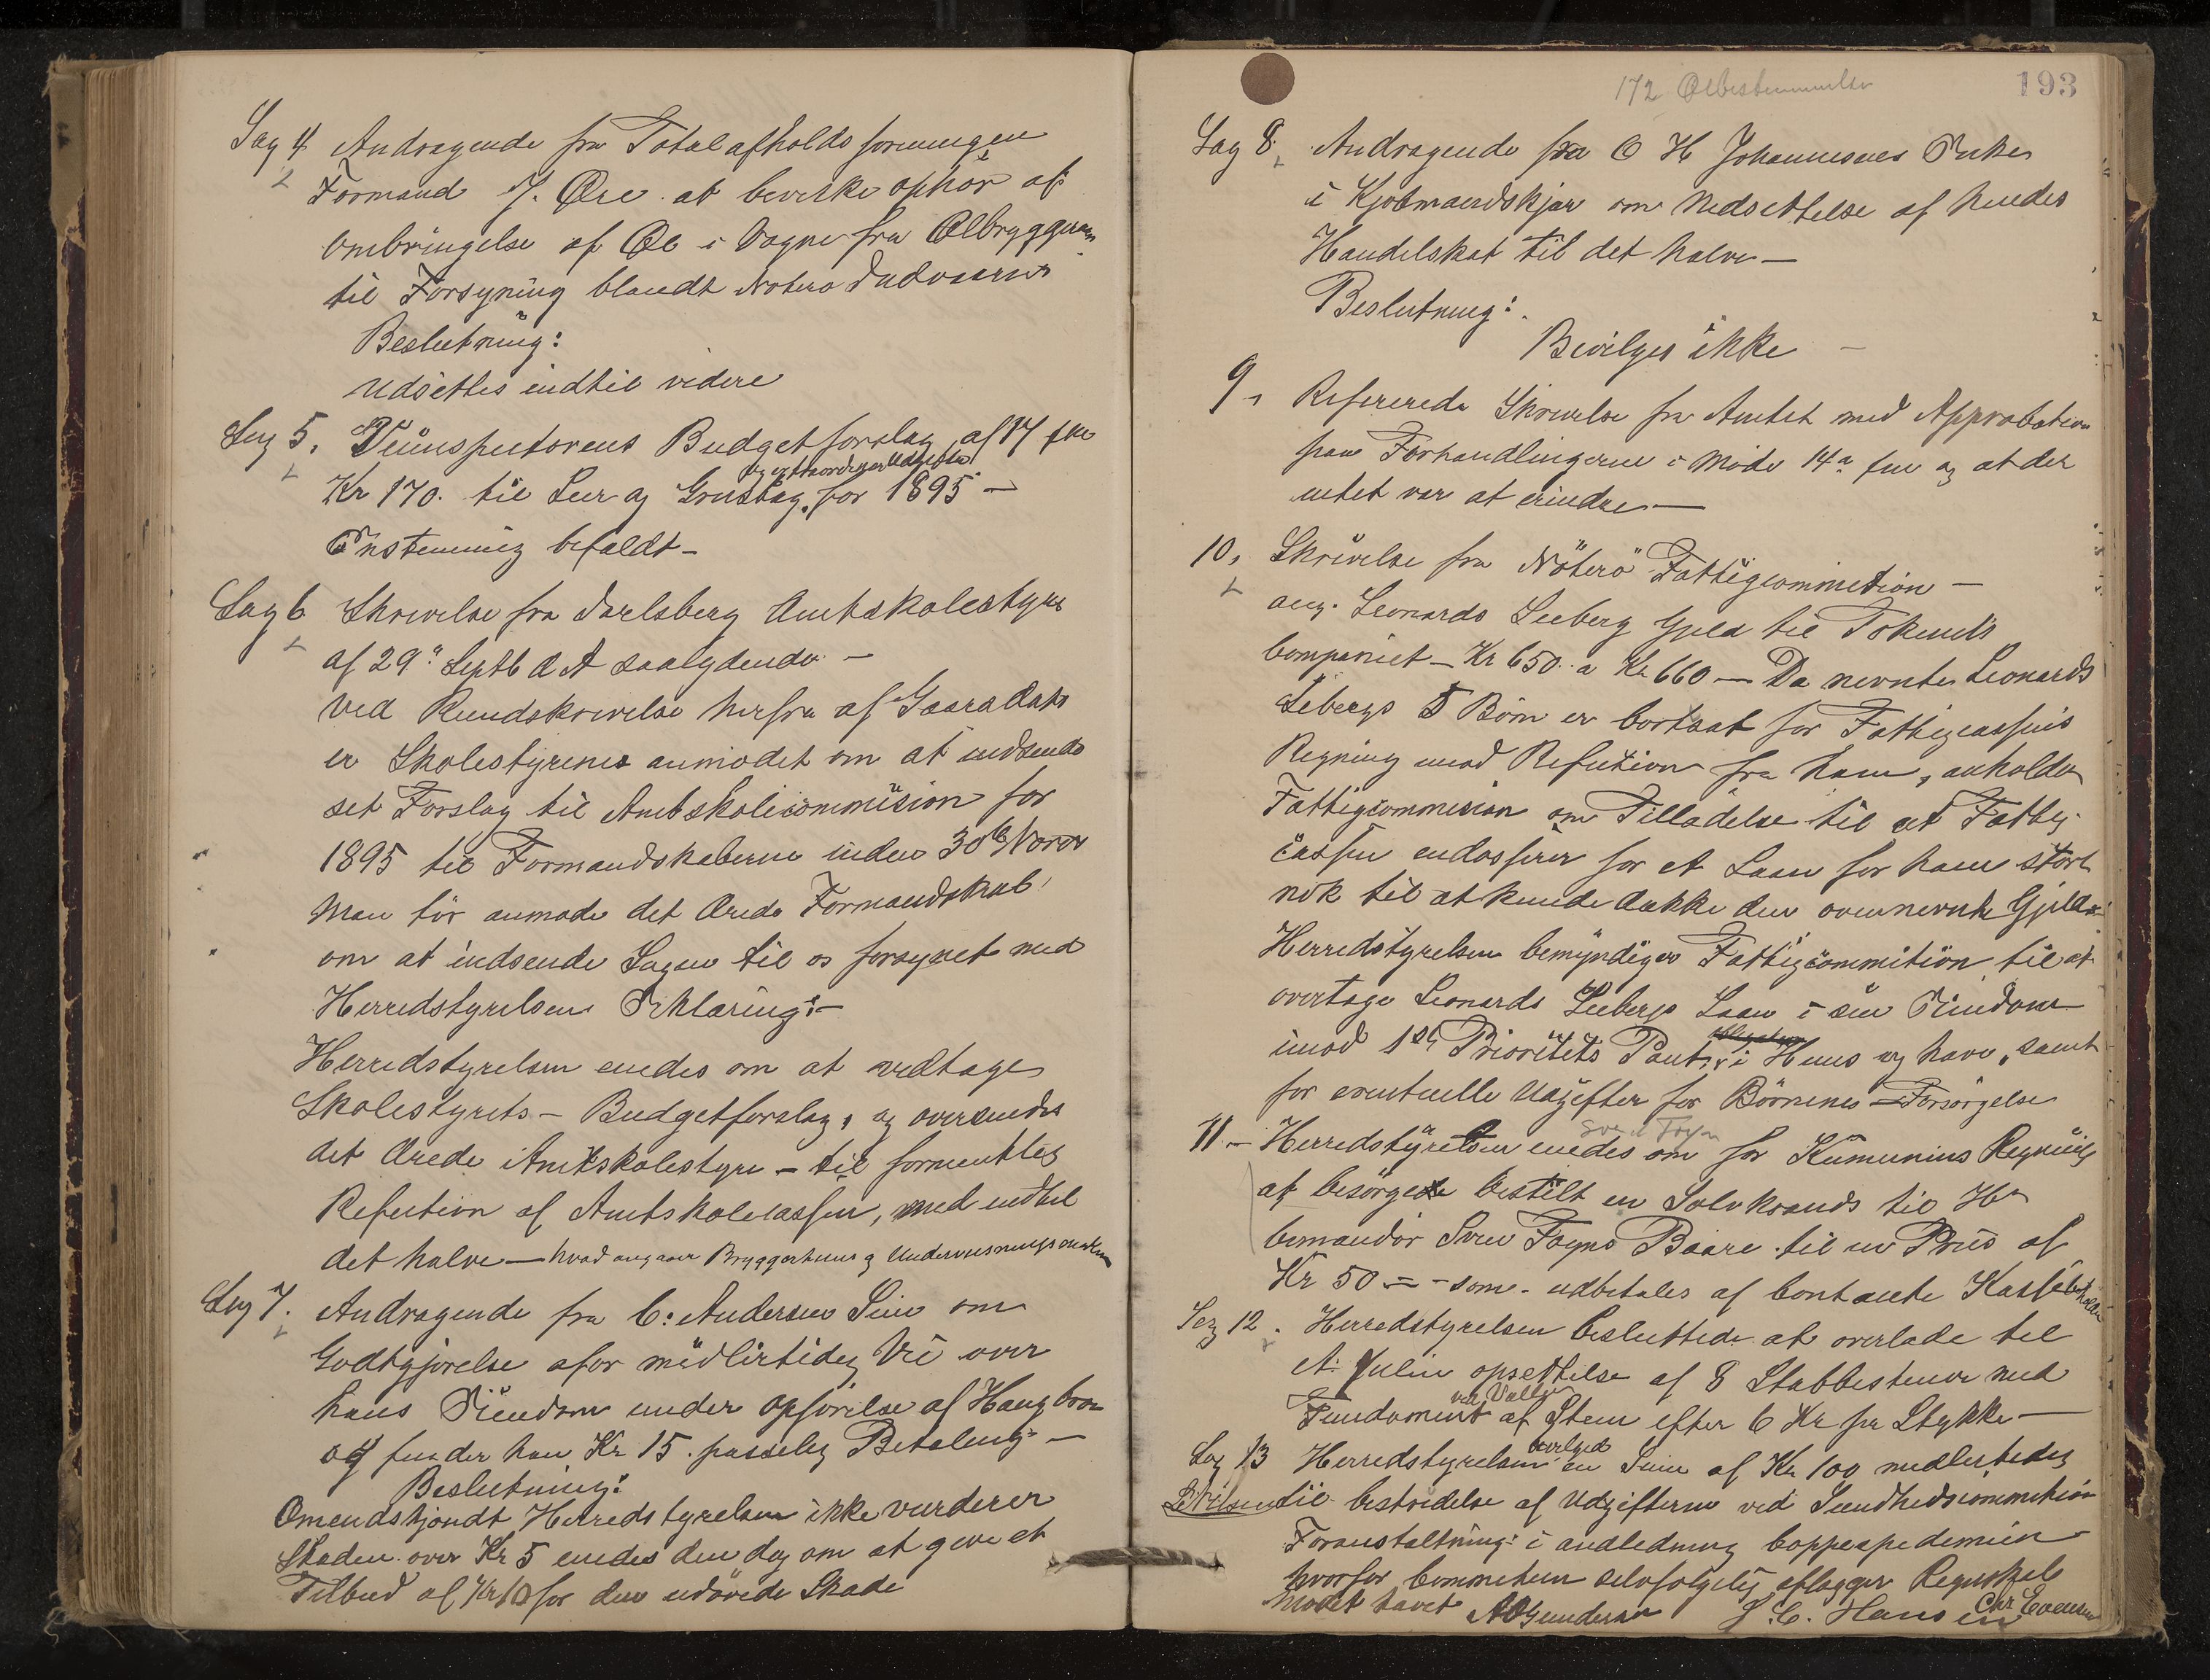 Sag 4 Andragende fra Totalafholdsforeningen
Formand J. Øre at bevirke ophör af
Ombringelse af Øl i Vogne fra Ølbryggerin
til Forsyning blandt Noterö Indvaanr
Beslutning:
Udsettes indtil videre
Sag 5. Veiinspectorens Budgetforslag af 17
og extraordinær Udgifter
Kr 170. til Leer og Grustag, for 1895 —
Enstemmig bifaldt -
Sag 6 Skrivelse fra Jarlsberg Amtskolestyre
af 29de Septb d A saalydende —
Ved Rundskrivelse herfra af Gaarsdato
er Skolestyrene anmodet om at indsende
set Forslag til Amtskolecommision for
1895 til Formandskaberne inden 30te Novbr
Man tör anmode det Ærede Formandskab
om at indsende Sagen til os forsynet med
Herredstyrelsens Erklæring:-
Herredstyrelsen enedes om at vedtage
Skolestyrets - Budgetforslag, og oversendes
det Ærede Amtskolestyre - til formentlig
Refution af Amtskolecassen, med indtil
det halve — hvad angaar Bryggerhuus og Undervisnings
Sag 7. Andragende fra C. Andersen Siun om
Godtgjørelse afor midlertidig Vei over
hans Eiendom under Opförelse af Haug bro
og finder han Kr 15. passelig Betaling —
Beslutning:
Omendskjöndt Herredstyrelsen ikke vurderer
Skaden over Kr 5 enedes den dog om at give et
Tilbud af Kr 10 for den udövede Skade
172 Ølbestemmelse
193
Sag 8. Andragende fra O H Johannesens Enke
i Kjöbmandskjær om Nedsettelse af hendes
Handelskat til det halve —
Beslutning:
Bevilges ikke —
9, Refererede Skrivelse fra Amtet med Approbation
paa Forhandlingerne i Möde 14de og at der
intet var at erindre. —
10, Skrivelse fra Nöterö Fattigcommition —
ang. Leonards Leeberg Gjeld til
Companiet — Kr 650 a Kr 660 — Da nevnte Leonards
Lebergs 5 Börn er bortsat for Fattigcassens
Regning mod Refution fra ham, anholder
Fattigcommision om Tilladelse til at Fattig-
cassen endosserer for et Laan for ham stort
nok til at kunde dække den ovennevnte Gjeld
Herredstyrelsen bemyndiger Fattigcommition til at
overtage Leonards Leebergs Laan i sin Eiendom
imod 1ste Prioritets Pant i Huus og have, samt
for eventuelle Udgifter for Börnenes Forsörgelse
Svend Foyn
11 — Herredstyrelsen enedes om for Kumunens Regning
at besörge bestilt en Sölvkrands til Hr
Comandör Sven Foyns Baare til en Priis af
Kr 50 — som udbetales af Contante Kassebeholdn
Sag 12. Herredstyrelsen besluttede at overlade til
A. Julin opsettelse af 8 Stabbestener med
ved Vallø
Fundament af Sten efter 6 Kr pr Stykke —
bevilged
Sag 13 Herredstyrelsen en Sum af Kr 100 midlertidig
til bestridelse af Udgifterne ved Sundhedscommition
Foranstaltning i andledning Coppeepedemien
hvorfor Commitionen selvfolgelig aflægger Regnskab
Mödet hævet A O Gundersen J. C. Hansen Chr Evensen